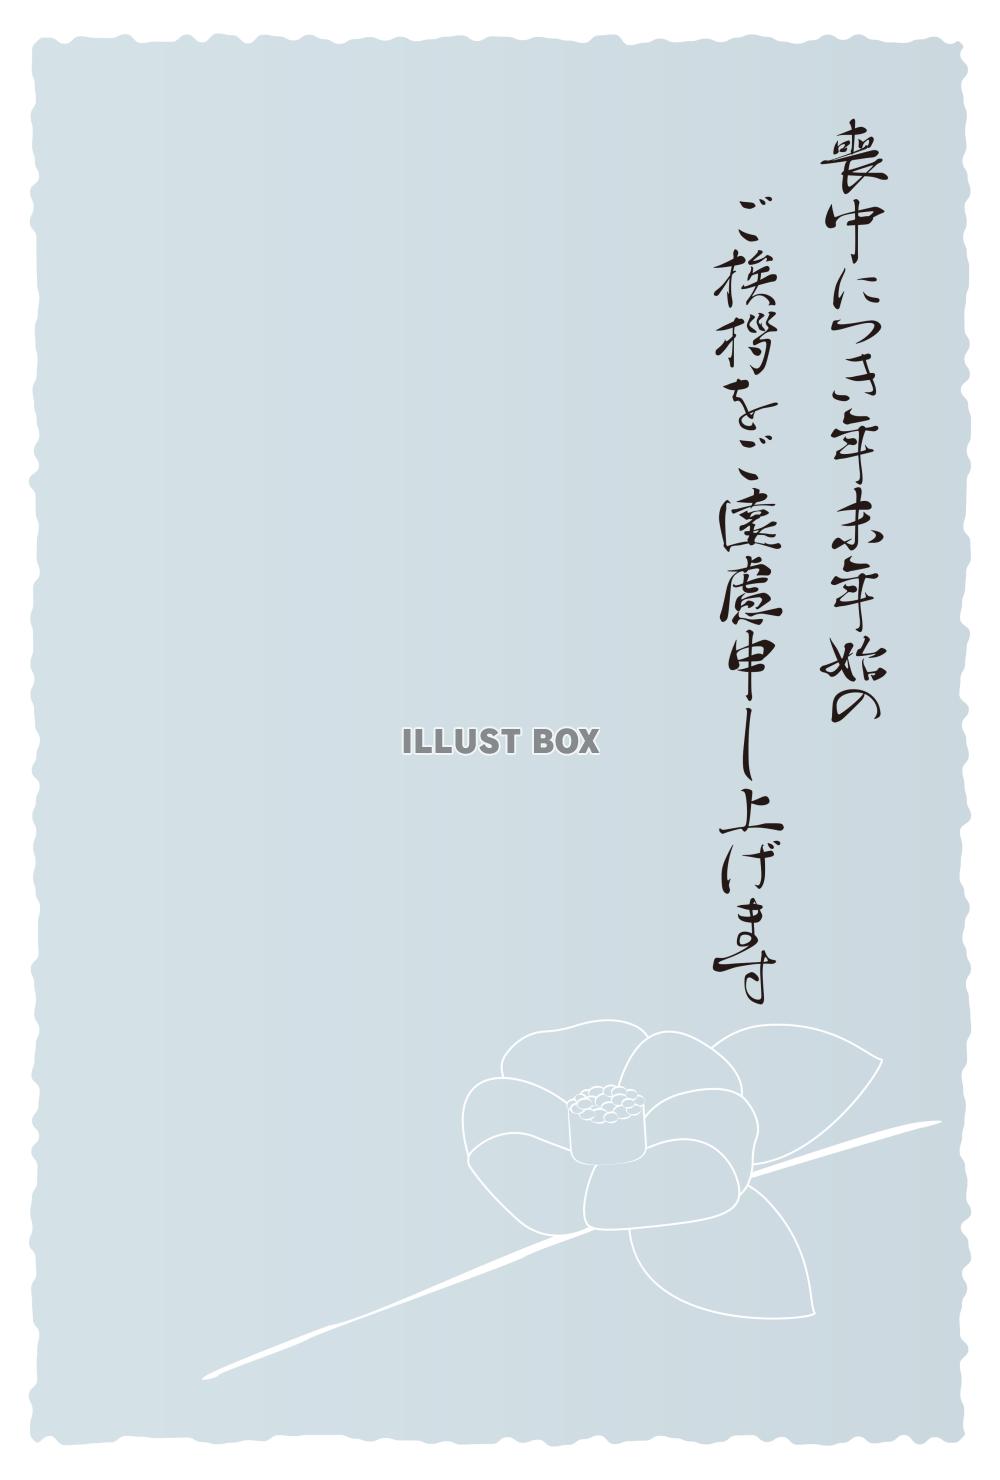 喪中につき年末年始の
ご挨拶をご遠慮申し上げます
ILLUST BOX